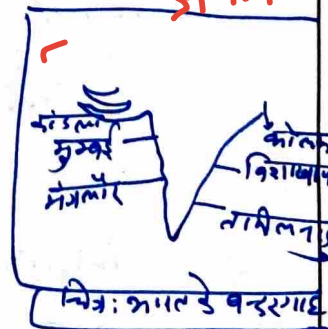 कांडला
मुम्बई
मंगलौर
कोल
विशाखाप
तामिलना
चित्र: भारत के बन्दरगाह